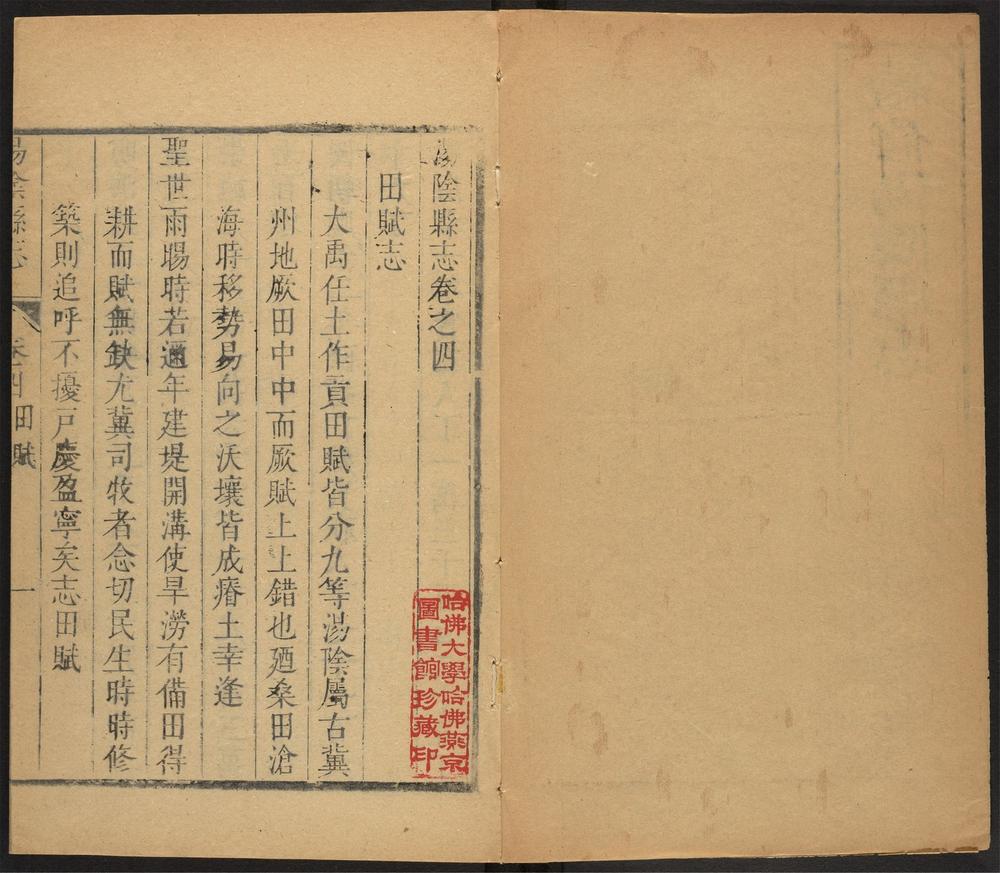 湯陰縣志卷之四
田賦志
大禹任土作貢田賦皆分九等湯陰屬古冀
州地厥田中中而厥賦上上錯也廼桑田滄
海時移勢易向之沃壤皆成瘠土幸逢
聖世雨暘時若邇年建堤開溝使旱澇有備田得
耕而賦無缺尤冀司牧者念切民生時時修
築則追呼不擾戸慶盈寧矣志田賦
湯陰縣志
卷四田賦
一
哈佛大學哈佛燕京
圖書館珍藏印